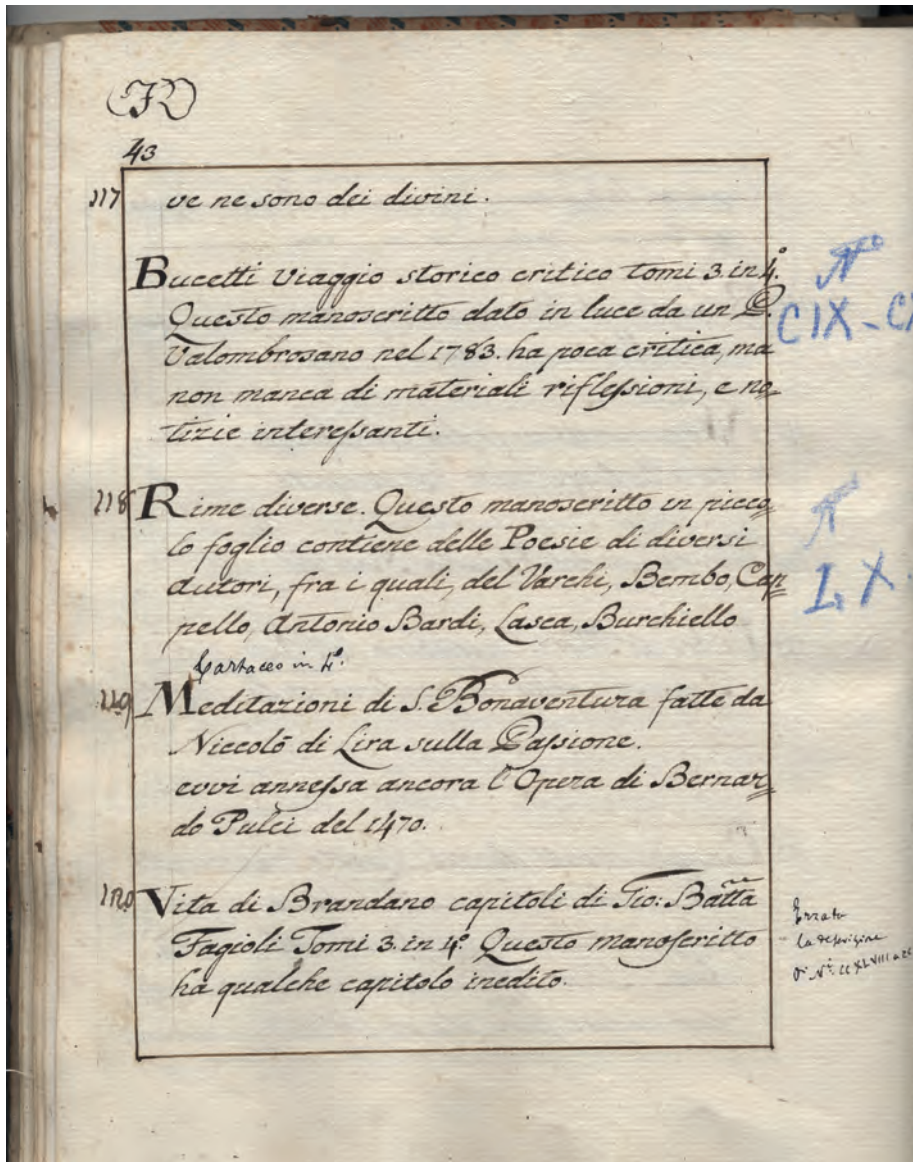 43
117 ve ne sono dei divini.
Bucetti Viaggio storico critico tomi 3. in 4.º
Questo manoscritto dato in luce da un P.
Valombrosano nel 1783. ha poca critica, ma
non manca di materiali riflessioni, e no=
tizie interessanti.
Nº
CIX - CX
118 Rime diverse. Questo manoscritto in picco=
lo foglio contiene delle Poesie di diversi
Autori, fra i quali, del Varchi, Bembo, Cap=
pello, Antonio Bardi, Lasca, Burchiello
Nº
LX
Cartaceo in 4º.
119 Meditazioni di S. Bonaventura fatte da
Niccolò di Lira sulla Passione.
evvi annessa ancora l'Opera di Bernar=
do Pulci del 1470.
120 Vita di Brandano capitoli di Gio: Batta
Fagioli Tomi 3. in 4º. Questo manoscritto
ha qualche capitolo inedito.
Errata
la
Nº.